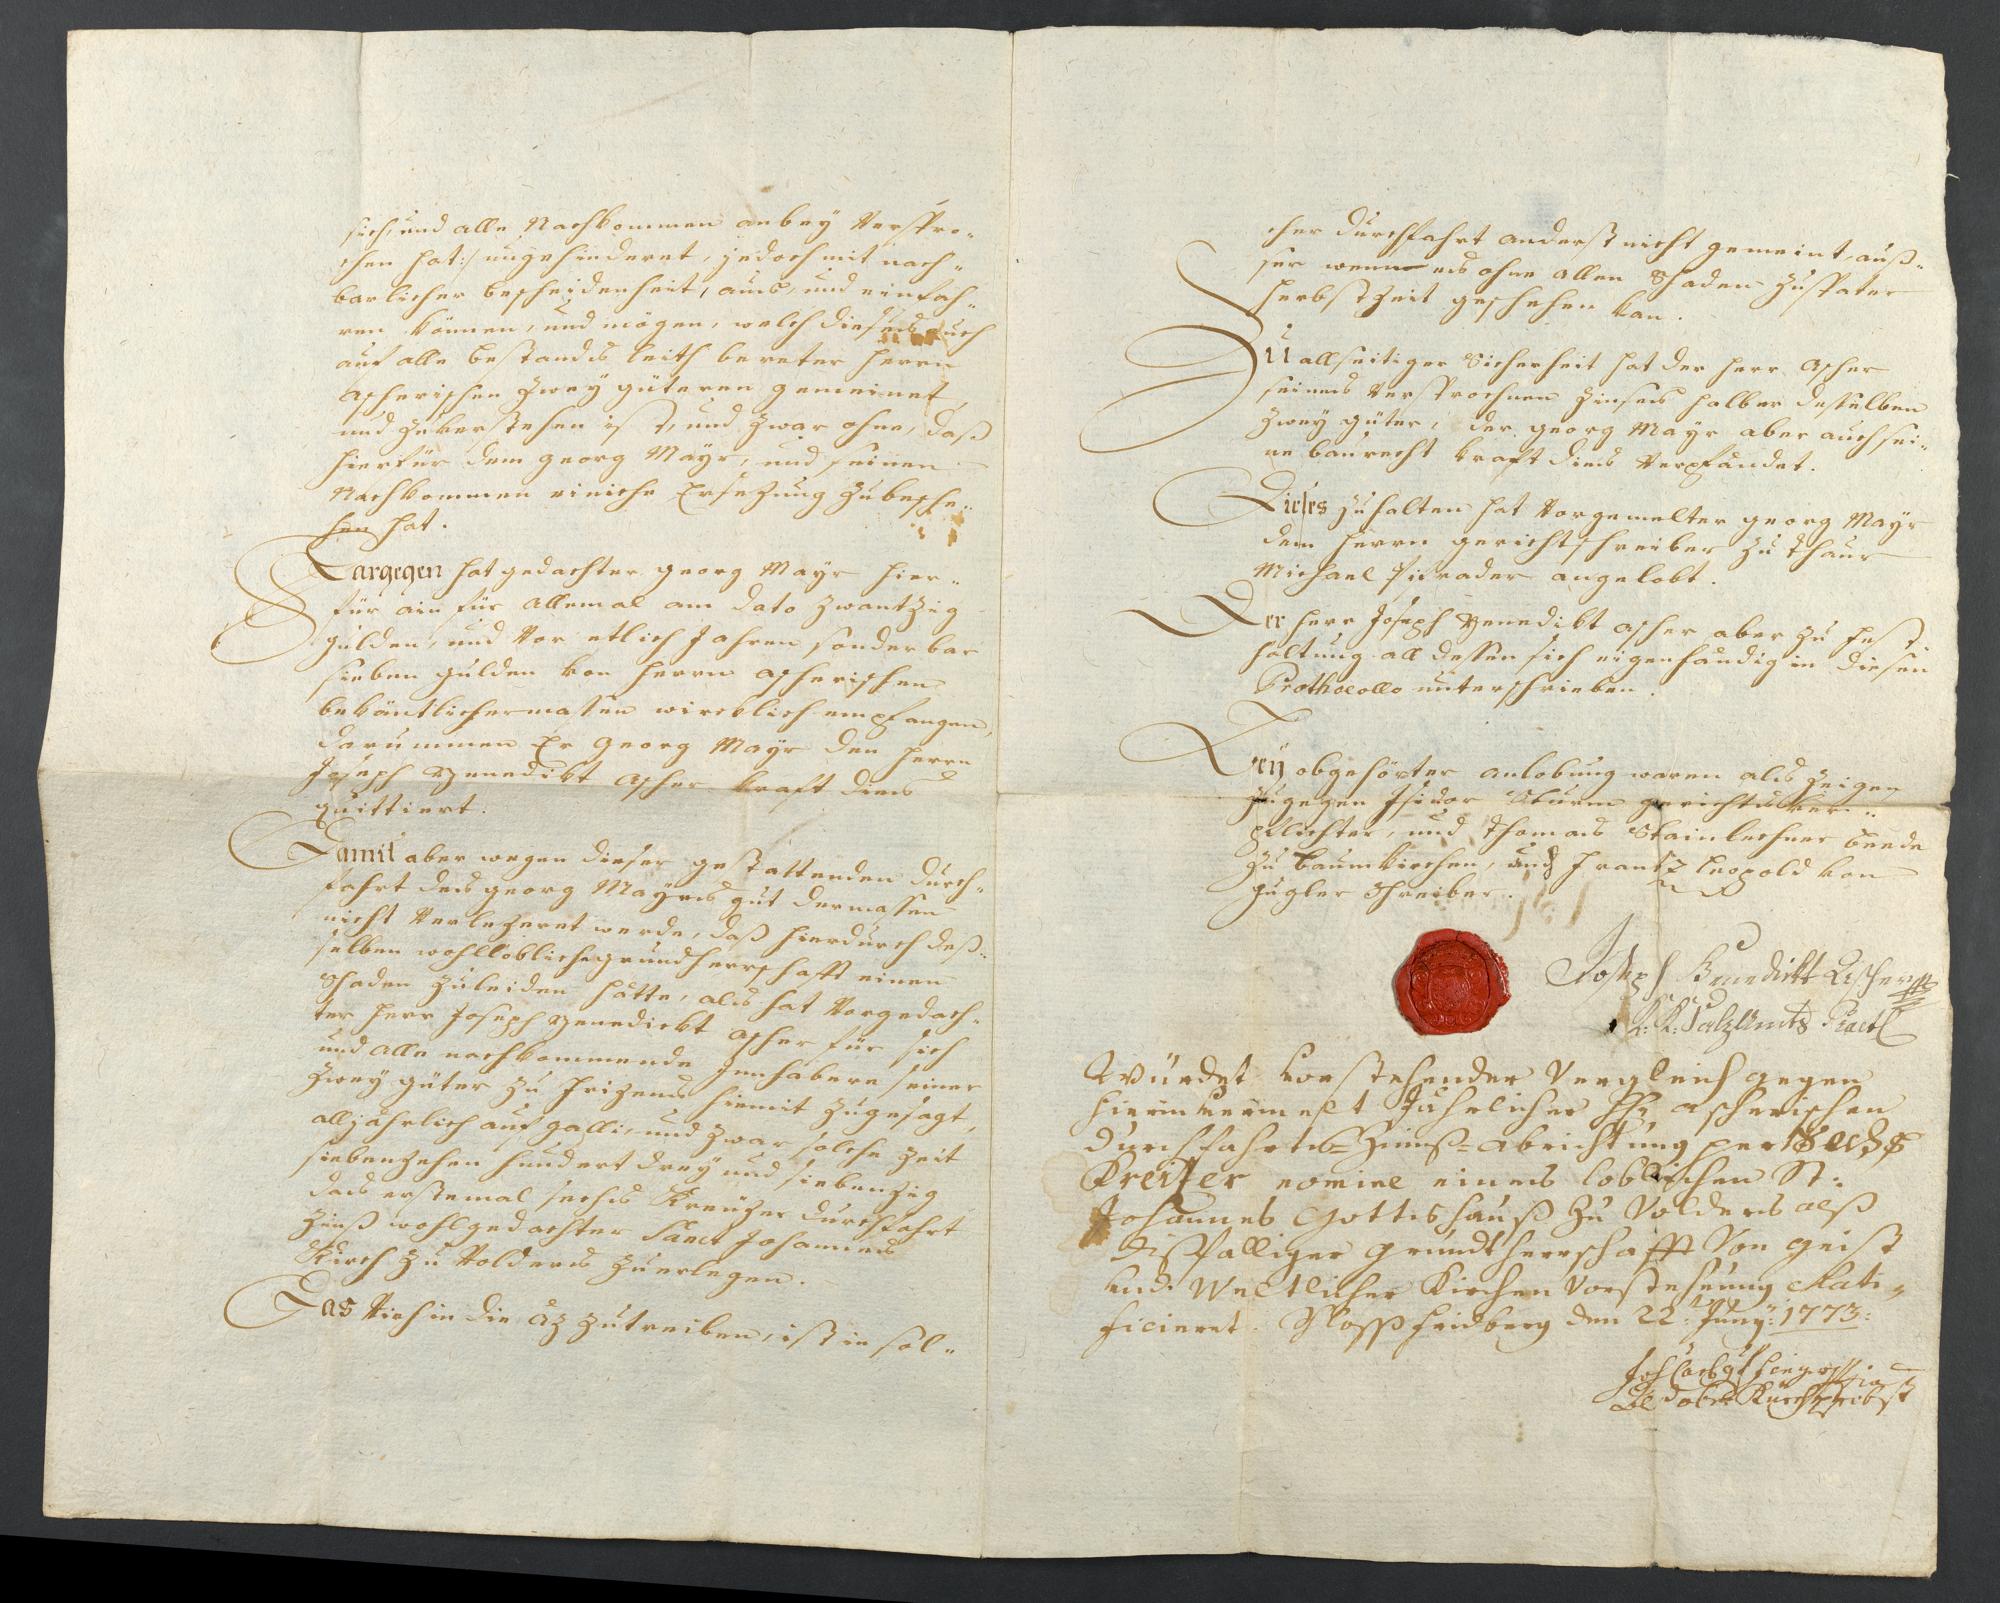 sich, und alle Nachkommen anbey Verspro„
chen hat:/ ungehinderet, jedoch mit nach„
barlicher bescheidenheit, aus, und einfah„
ren können, und mögen, welch dieses auch
auf alle bestands leith bereter herrn
Ascherischen zwey güteren gemeinet,
und zuverstehen ist, und zwar ohne, daß
hierfür dem georg Mayr, und seinen
Nachkommen einiche Ersezung zubesche„
hen hat.
Dargegen hat gedachter georg Mayr hier„
für ain für allemal am dato zwantzig
gulden, und Vor etlich Jahren sonderbar
sieben gulden von herrn Ascherischen
bekäntlichermassen wircklich empfangen,
darummen Er Georg Mayr den herrn
Joseph Benedikt Ascher kraft dies
quittiert.
Damit aber wegen dieser gestattenden durch„
fahrt des georg Mayrs gut dermassen
nicht Verlezeret werde, daß hierdurch deß„
selben wohllobliche grundherrschafft einen
Schaden zuleiden hätte, als hat Vorgedach„
ter herr Joseph Benedickt Ascher für sich
und alle nachkommende Innhabere seiner
zwey güter zu Frizens hiemit zugesagt,
alljährlich auf galli, und zwar solche Zeit
siebenzehen hundert drey und siebenzig
das erstemal sechs Kreüzer durchfahrt
Zinß wohlgedachter Sanct Johannes
Kirch zu Volders zuerlegen.
Das Vich in die Äz zutreiben, ist in sol„
cher durchfahrt anderst nicht gemeint, auß„
ser wenn es ohne allen Schaden zu spater
herbstzeit geschehen kan.
Zu allseitiger Sicherheit hat der herr Ascher
seines Versprochnen Zinses halber deßelben
zwey güter, der georg Mayr aber auch sei„
ne baurecht kraft dies Verpfändet.
Dieses zuhalten hat Vorgemelter georg Mayr
dem herrn gerichtschreiber zu Thaur
Michael angelobt.
Der herr Joseph Benedikt Ascher aber zu fest„
haltung all dessen sich eigenhändig in diesen
Prothocollo unterschrieben.
Bey obgehörter anlobung waren als Zeigen
zugegen Isidor Sturm gerichts ver„
pflichter, und Thomas Stainlechner beede
zu baumkirchen, und Frantz Leopold von
gugler Schreiber.
Joseph Benedickt Ascher
K: K: Salz Amts
Würdet vorstehender Vergleich gegen
hierin vermelt Jährlicher Hr: Ascherischen
Durchfahrts-Zinß-abrichtung per Sechs
Kreizer nomine eines loblichen St:
Johannes Gottshauß zu Volders alß
dißfalliger Grundtherrschafft Von Geist
und Weltlicher Kirchen Vorstehung Rati„
ficieret. Schloss Fridberg den 22: Juny: 1773: